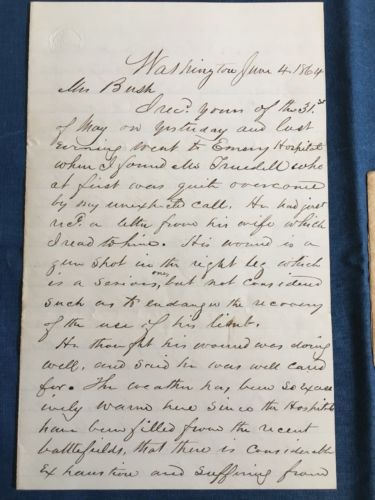 Washington June 4. 1864
Mr Bush
I recd. yours of the 31st
of May on yesterday and last
evening went to Emery Hospital
when I found Mr Truesdell who
at first was quite overcome
by my unexpected call. He had just
recd. a letter from his wife which
I read to him. His wound is a
gun shot in the right leg which
is a serious one, but not considered
such as to endanger the recovery
of the use of his limb.
He thought his wound was doing
well, and said he was well cared
for. The weather has been so excess
ively warm here since the Hospitals
have been filled from the recent
battlefields, that there is considerable
exhaustion and suffering from